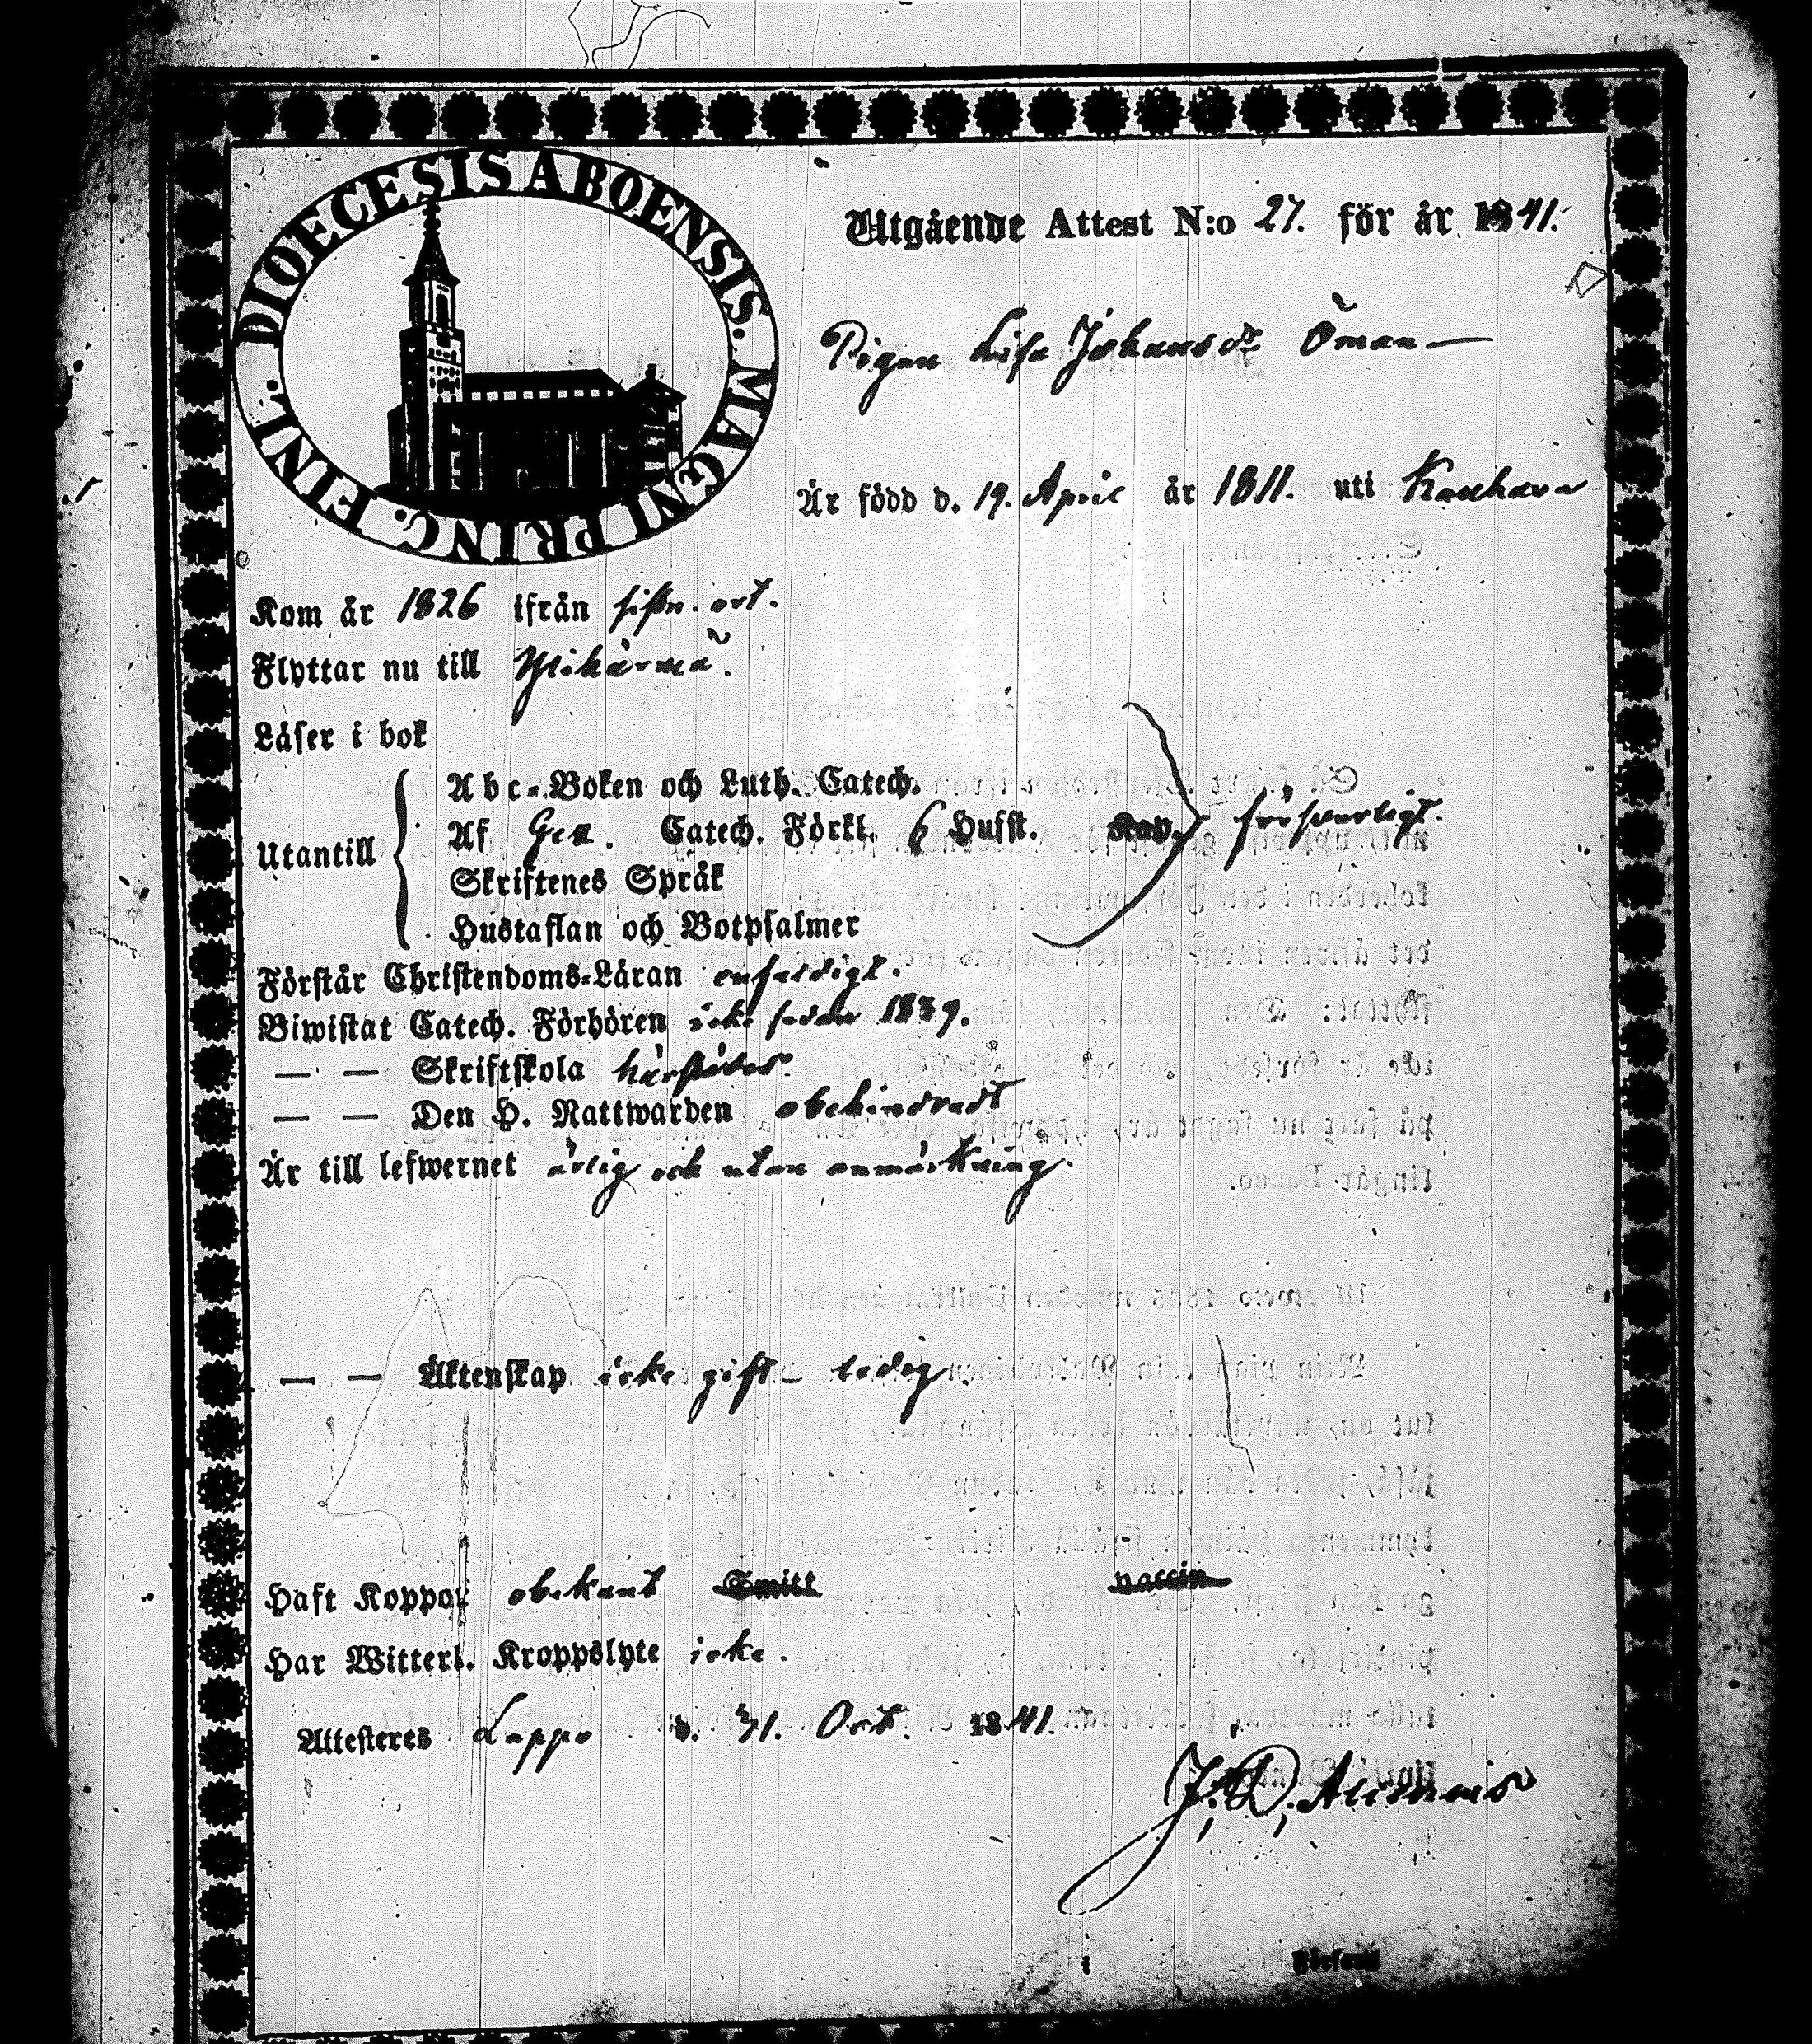 DIOECESIS ABOENSIS. MAGNI PRINC. FINL.
Utgående Attest N:o 27. för år 1841.
Pigan Lisa Johansdr Öman
Är född d. 19. April år 1811. uti Kauhava
Kom år 1826 ifrån sistn. ort.
Flyttar nu till Ylihärmä.
Läser i bok
Utantill
Abc-Boken och Luth. Catech.
Af Gez. Catech. Förkl. 6 Hufst. Kap. försvarligt.
Skriftenes Språk
Hustaflan och Botpsalmer
Förstår Christendoms-Läran enfaldigt.
Biwistat Catech. Förhören icke sedan 1839.
— — Skriftskola härstädes.
— — Den H. Nattwarden obehindradt
Är till lefwernet ärlig och utan anmärkning.
— — Äktenskap icke gift – ledig.
Haft Koppor obekant Smitt vaccin
Har Witterl. Kroppslyte icke.
Attesteres Lappo d. Oct. 1841.
J. D. Alcenius